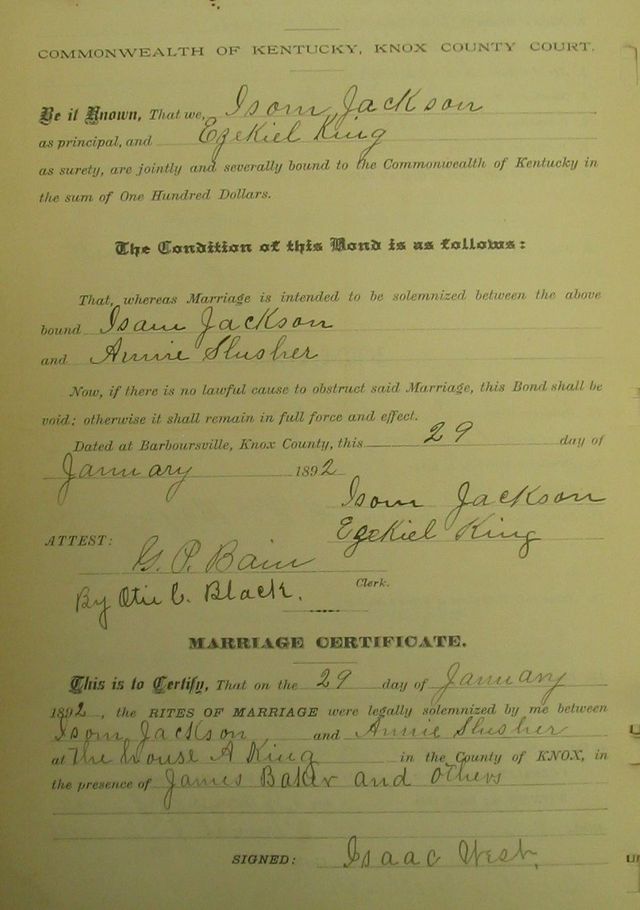 COMMONWEALTH OF KENTUCKY, KNOX COUNTY COURT.
Be it Known, That we, Isom Jackson
as principal, and Ezekiel King
as surety, are jointly and severally bound to the Commonwealth of Kentucky in
the sum of One Hundred Dollars.
The Condition of this Bond is as follows:
That, whereas Marriage is intended to be solemnized between the above
bound Isom Jackson
and Annie Slusher
Now, if there is no lawful cause to obstruct said Marriage, this Bond shall be
void; otherwise it shall remain in full force and effect.
Dated at Barboursville, Knox County, this 29 day of
January 1892
Isom Jackson
Ezekiel King
ATTEST:
G. P. Bain
Clerk.
By Otie C. Black.
MARRIAGE CERTIFICATE.
This is to Certify, That on the 29 day of January
1892, the RITES OF MARRIAGE were legally solemnized by me between
Isom Jackson and Annie Slusher
at The house A King in the County of KNOX, in
the presence of James Baker and others
SIGNED: Isaac West